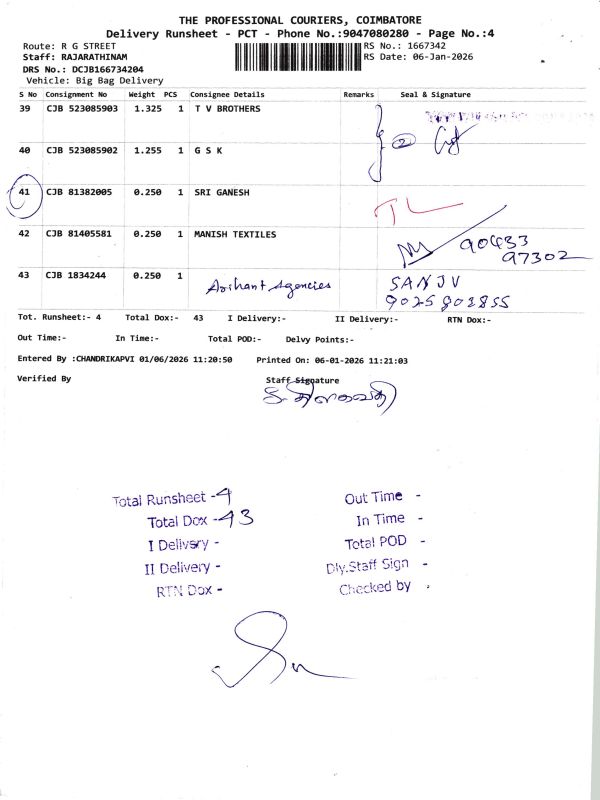 THE PROFESSIONAL COURIERS, COIMBATORE
Delivery Runsheet - PCT - Phone No.:9047080280 - Page No.:4
Route: R G STREET RS No.: 1667342
Staff: RAJARATHINAM RS Date: 06-Jan-2026
DRS No.: DCJB166734204
Vehicle: Big Bag Delivery
S No Consignment No Weight PCS Consignee Details Remarks Seal & Signature
39 CJB 523085903 1.325 1 T V BROTHERS
40 CJB 523085902 1.255 1 G S K 2
41 CJB 81382005 0.250 1 SRI GANESH
42 CJB 81405581 0.250 1 MANISH TEXTILES 90433
97302
43 CJB 1834244 0.250 1 Arihant Agencies SANJV
9025802855
Tot. Runsheet:- 4 Total Dox:- 43 I Delivery:- II Delivery:- RTN Dox:-
Out Time:- In Time:- Total POD:- Delvy Points:-
Entered By :CHANDRIKAPVI 01/06/2026 11:20:50 Printed On: 06-01-2026 11:21:03
Verified By Staff Signature
Total Runsheet -4 Out Time -
Total Dox -43 In Time -
I Delivery - Total POD -
II Delivery - Dly.Staff Sign -
RTN Dox - Checked by -